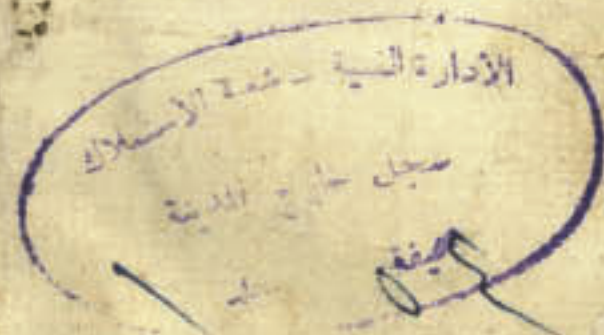 الأدارة الفنية - شعبة الأستملاك
سجل خارج المدينة
صحيفة